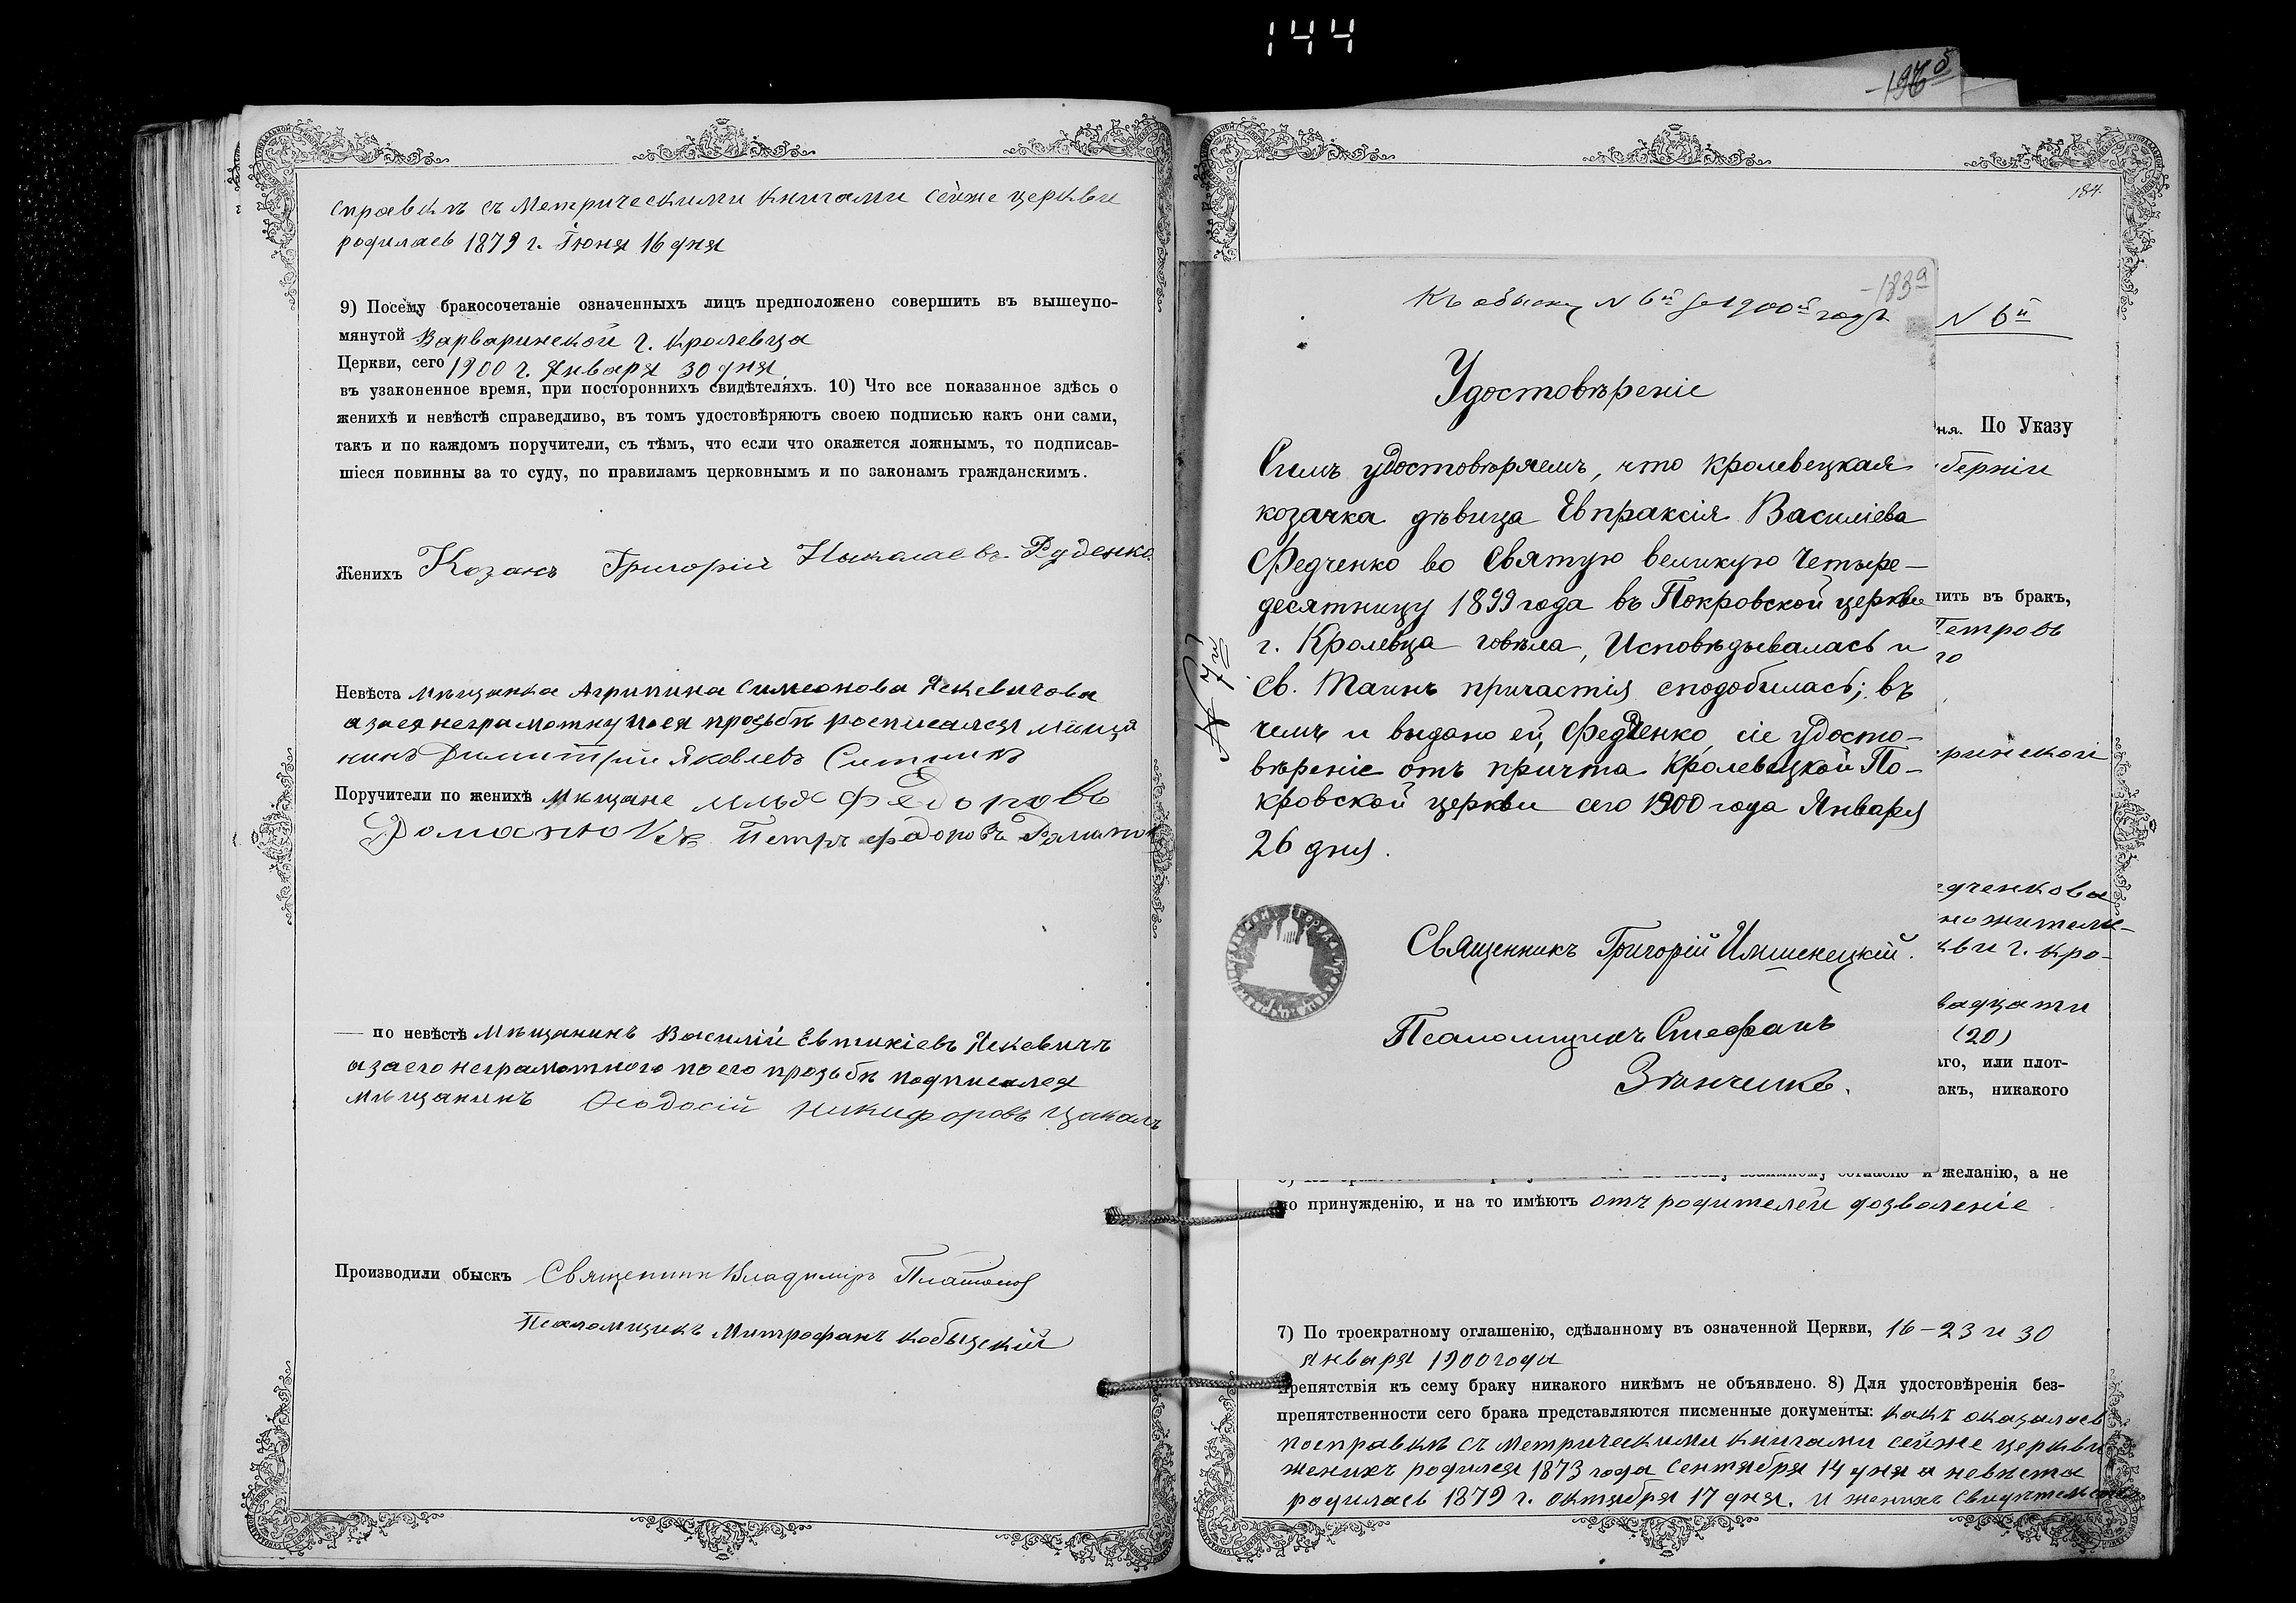 144
справкѣ съ метрическими книгами сейже церкви
родилась 1879 г. Іюня 16 дня
9) Посему бракосочетаніе означенныхъ лицъ предположено совершить въ вышеупо-
мянутой Варваринской г. Кролевца
Церкви, сего 1900 г. Января 30 дня.
въ узаконенное время, при постороннихъ свидѣтеляхъ. 10) Что все показанное здѣсь о
женихѣ и невѣстѣ справедливо, въ томъ удостовѣряютъ своею подписью какъ они сами,
такъ и по каждомъ поручители, съ тѣмъ, что если что окажется ложнымъ, то подписав-
шіеся повинны за то суду, по правиламъ церковнымъ и по законамъ гражданскимъ.
Женихъ Козакъ Григорій Николаевъ Руденко
Невѣста мѣщанка Агрипина Симеонова Яскевичова
а за ея неграмотну по ея прозьбѣ росписался мѣща
нинъ Димитрій Яковлевъ Ситникъ
Поручители по женихѣ мѣщане Илья Федоровъ
Романюкъ Петръ Федоровъ
— по невѣстѣ Мѣщанинъ Василій Евтихіевъ Яскевичъ
а за его неграмотного по его прозьбѣ подписался
мѣщанинъ Ѳеодосій Никифоровъ
Производили обыскъ Священникъ Владиміръ Платонов
Псаломщикъ Митрофанъ Кобыцскій
184
183а
Къ обыску N 6й 1900й года
Удостовѣреніе
Симъ удостовѣряемъ, что кролевецкая
козачка дѣвица Евпраксія Василіева
Федченко во Святую великую Четыре-
десятницу 1899 года въ Покровской церкви
г. Кролевца говѣла, Исповѣдывалась и
Св. Таинъ причастія сподобилась; въ
чемъ и выдано ей, Федченко, сіе удосто-
вѣреніе отъ причта Кролевецкой По-
кровской церкви сего 1900 года Января
26 дня.
№ 7й
Священникъ Григорій Имшенецкій.
Псаломщикъ Стефанъ
N 6й
ня. По Указу
берніи
ить въ бракъ,
Петровъ
го
ринской
едченкова
но жители-
кви г. Кро-
вадцати
(20)
аго, или плот-
акъ, никакого
желанію, а не
по принужденію, и на то имѣютъ отъ родителей дозволеніе
7) По троекратному оглашенію, сдѣланному въ означенной Церкви, 16-23 и 30
января 1900 года
препятствія къ сему браку никакого никѣмъ не объявлено. 8) Для удостовѣренія без-
препятственности сего брака представляются писменные документы: какъ оказалось
посправкѣ съ метрическими книгами сейже церкви
женихъ родился 1873 года Сентября 14 дня а невѣста
родилась 1879 г. Октября 17 дня. и женихъ